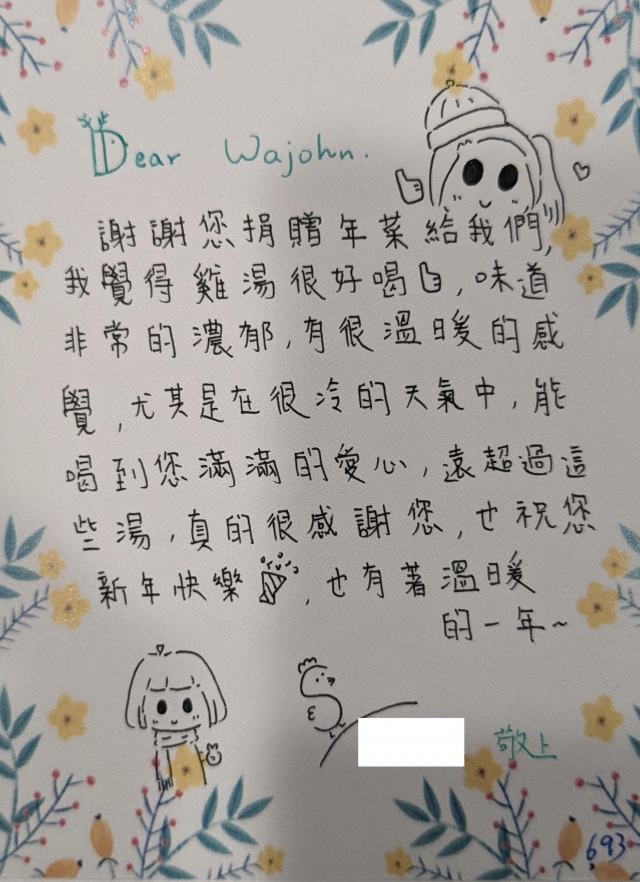 Dear Wajohn.
謝謝您捐贈年菜給我們,
我覺得雞湯很好喝,味道
非常的濃郁,有很溫暖的感
覺,尤其是在很冷的天氣中,能
喝到您滿滿的愛心,遠超過這
些湯,真的很感謝您,也祝您
新年快樂,也有著溫暖
的一年~
敬上
693